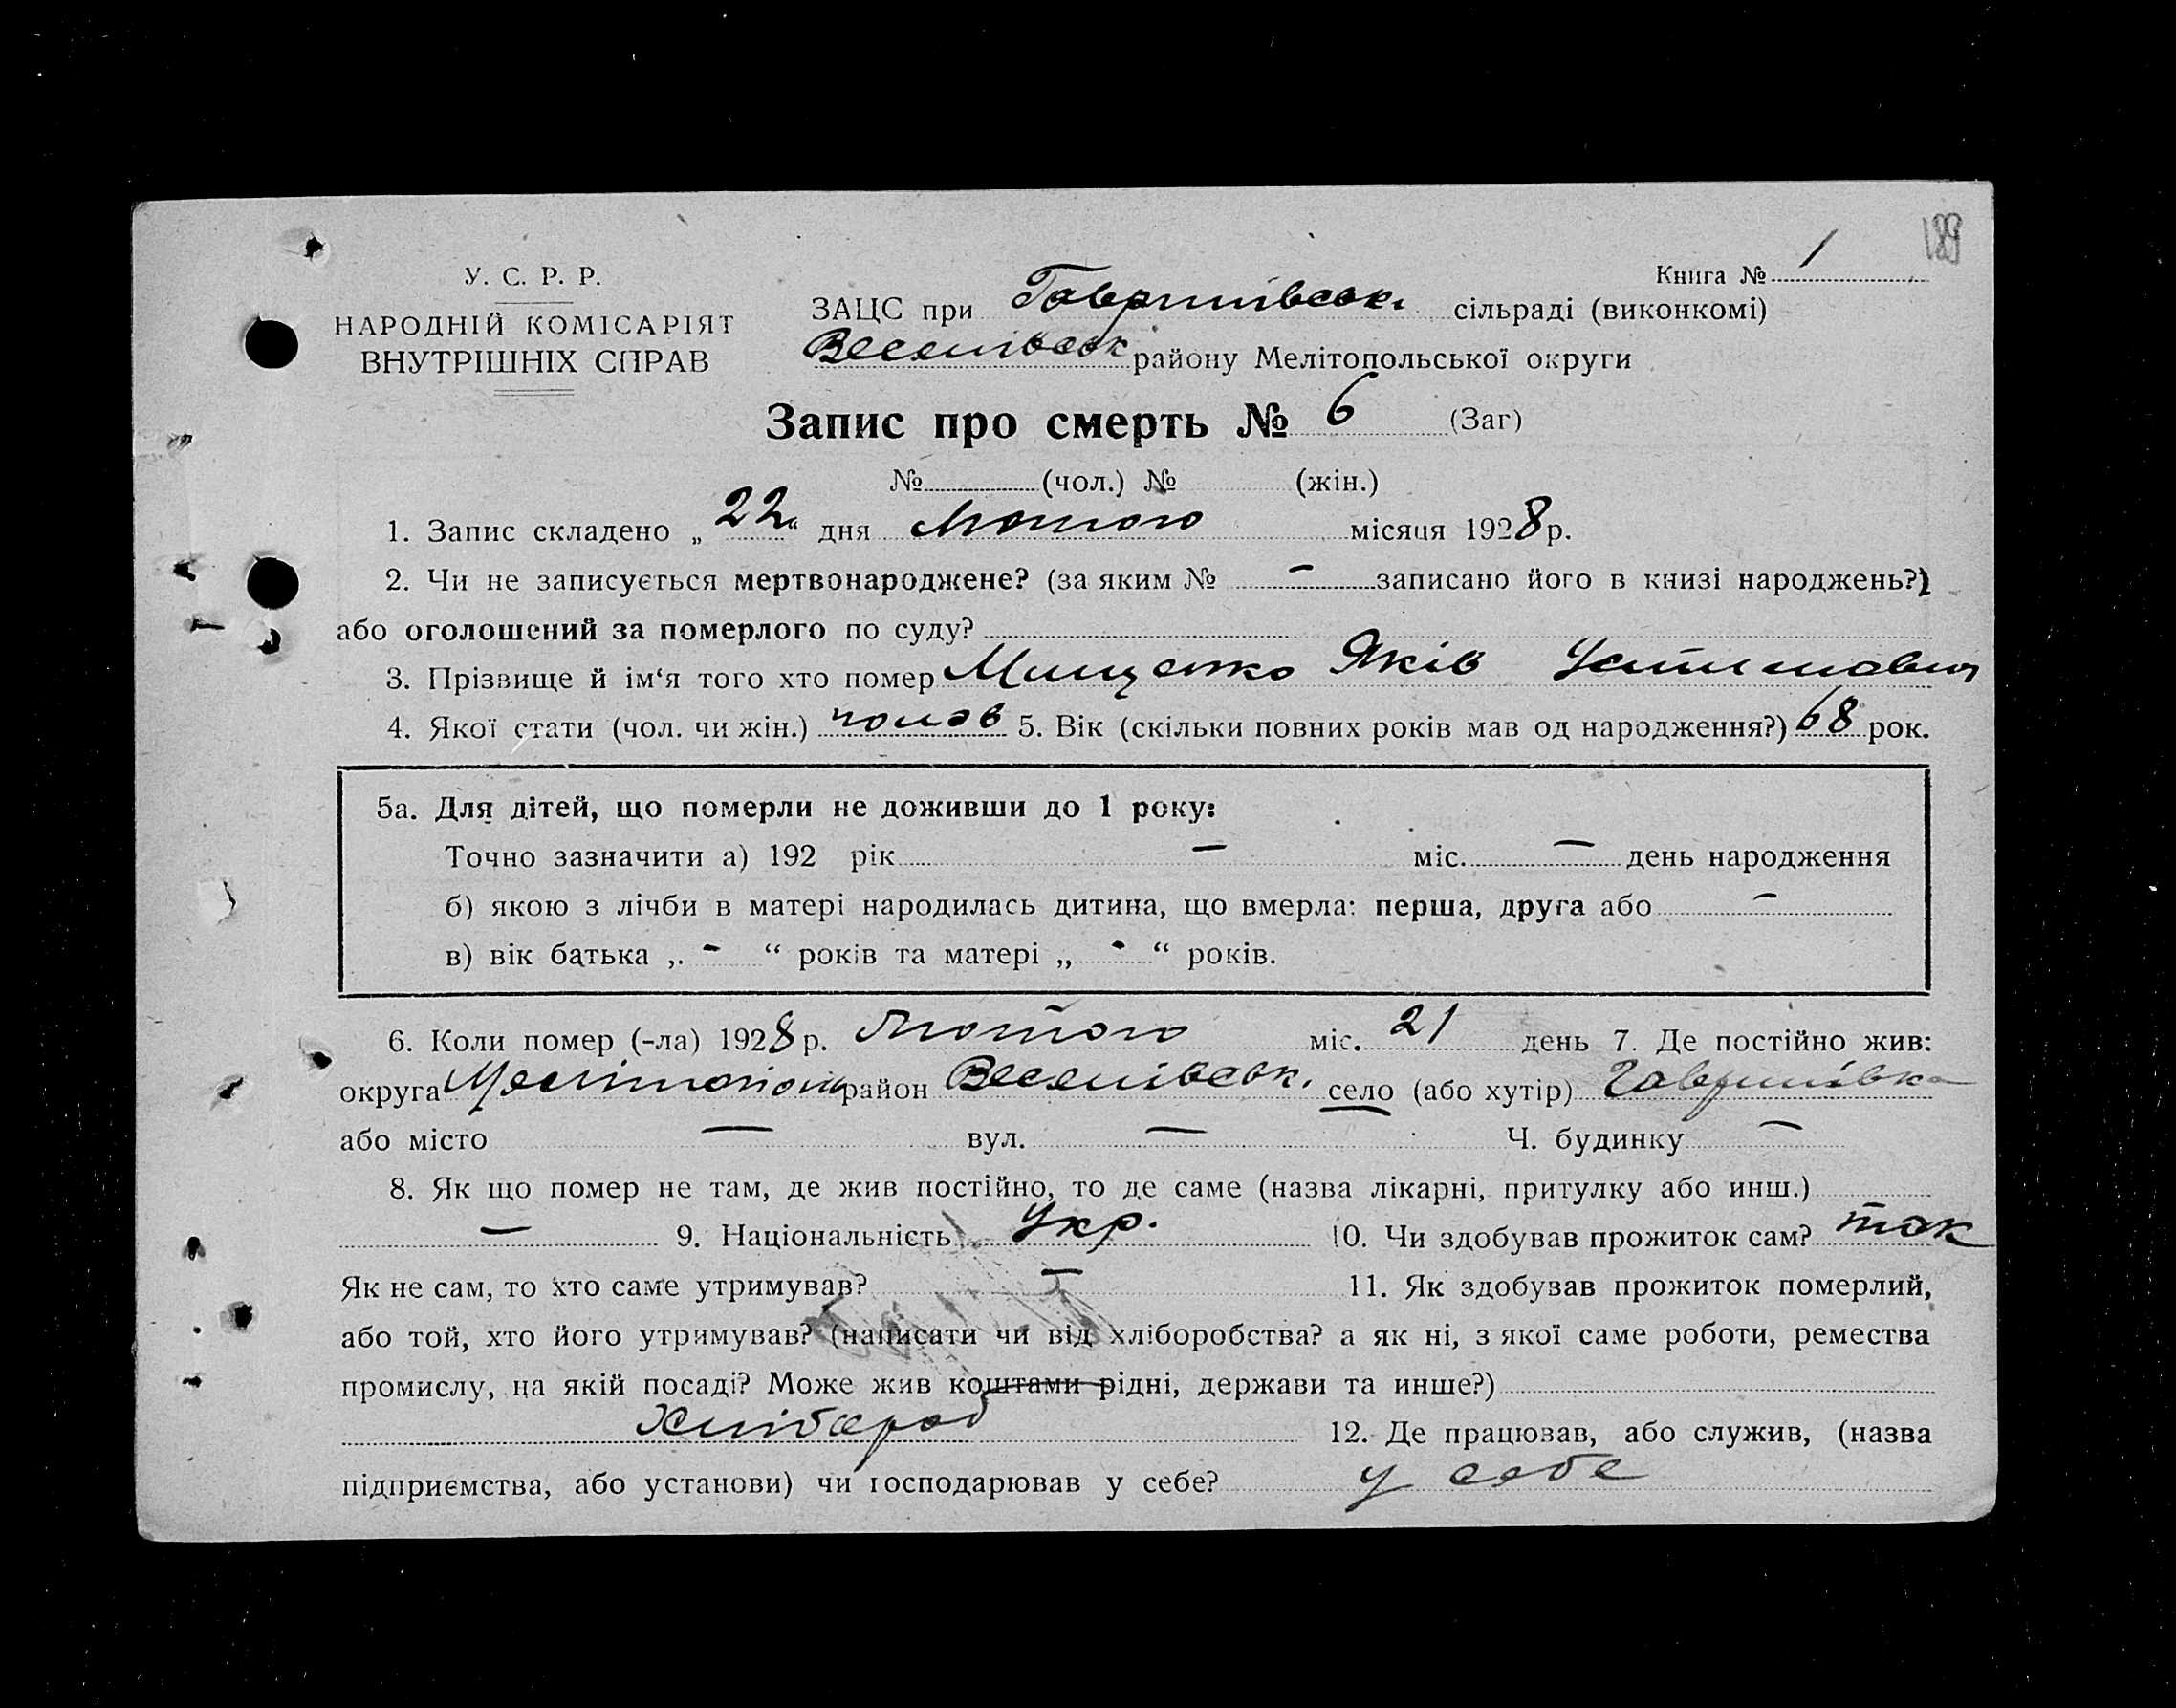 189
Книга № 1
У. С. Р. Р.
НАРОДНІЙ КОМІСАРІЯТ
ВНУТРІШНІХ СПРАВ
ЗАЦС при Гаврилівськ. сільраді (виконкомі)
Веселівськ району Мелітопольської округи
Запис про смерть № 6 (Заг)
№ (чол.) № (жін.)
1. Запис складено „22“ дня Лютого місяця 1928 р.
2. Чи не записується мертвонароджене? (за яким № – записано його в книзі народжень?)
або оголошений за померлого по суду?
3. Прізвище й ім‘я того хто помер Мищенко Яків
4. Якої стати (чол. чи жін.) чолов 5. Вік (скільки повних років мав од народження?) 68 рок.
5а. Для дітей, що померли не доживши до 1 року:
Точно зазначити а) 192 рік – міс. – день народження
б) якою з лічби в матері народилась дитина, що вмерла: перша, друга або –
в) вік батька „ - “ років та матері „ - “ років.
6. Коли помер (-ла) 1928 р. Лютого міс. 21 день 7. Де постійно жив:
округа Мелітопольськ район Веселівськ. село (або хутір) Гаврилівка
або місто – вул. – Ч. будинку –
8. Як що помер не там, де жив постійно, то де саме (назва лікарні, притулку або инш.)
– 9. Національність Укр. 10. Чи здобував прожиток сам? так
Як не сам, то хто саме утримував? – 11. Як здобував прожиток померлий,
або той, хто його утримував? (написати чи від хліборобства? а як ні, з якої саме роботи, ремества
промислу, на якій посаді? Може жив коштами рідні, держави та инше?)
Хлібороб 12. Де працював, або служив, (назва
підприємства, або установи) чи господарював у себе? у себе